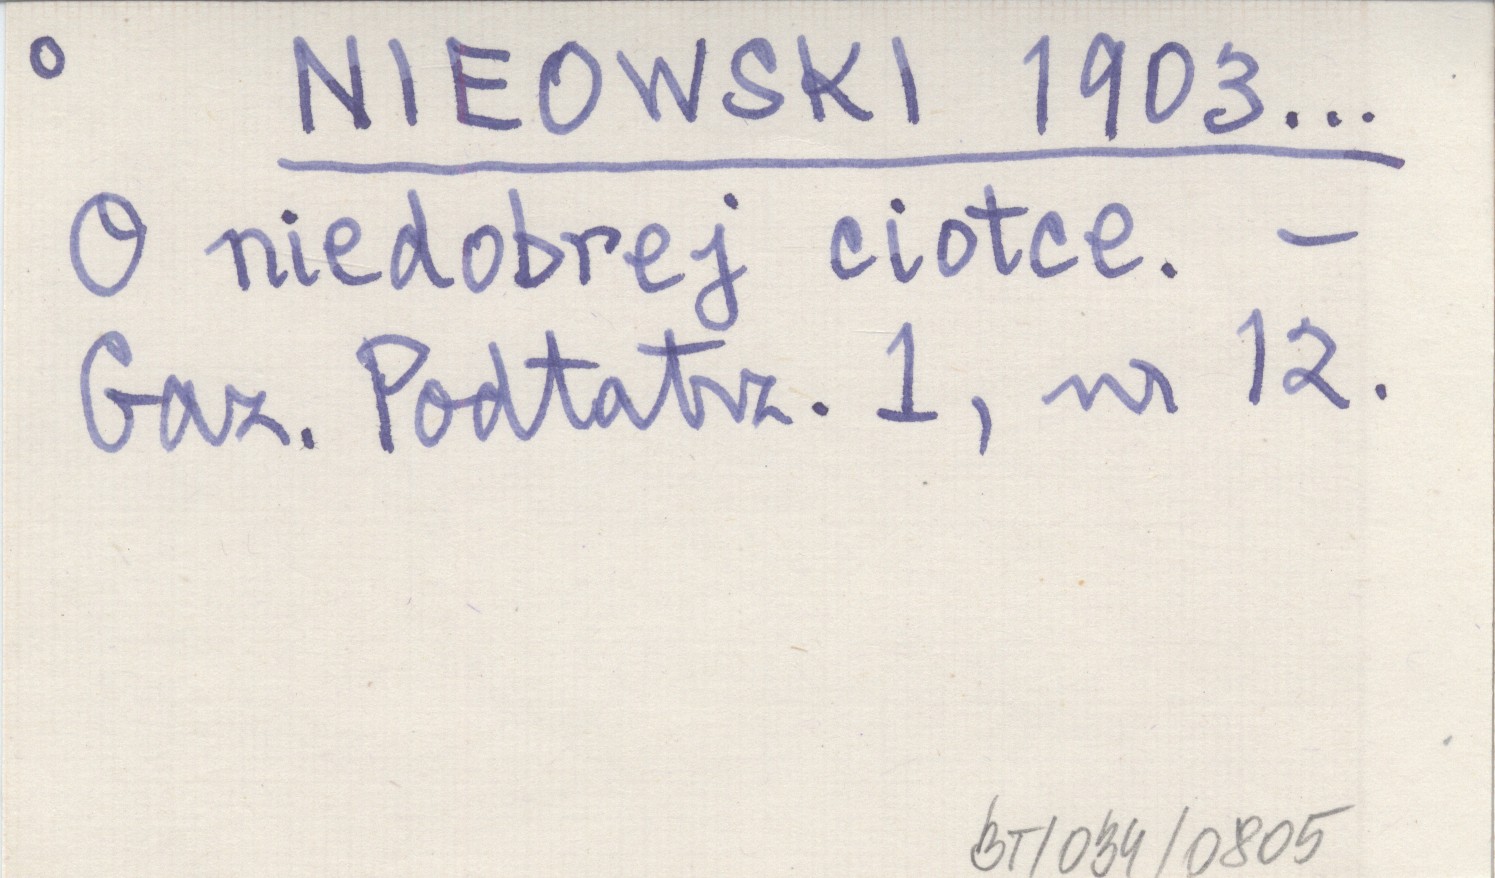 ° NIEOWSKI 1903...
O niedobrej ciotce. –
Gaz. Podtatrz. 1, nr 12.
BT/034/0805